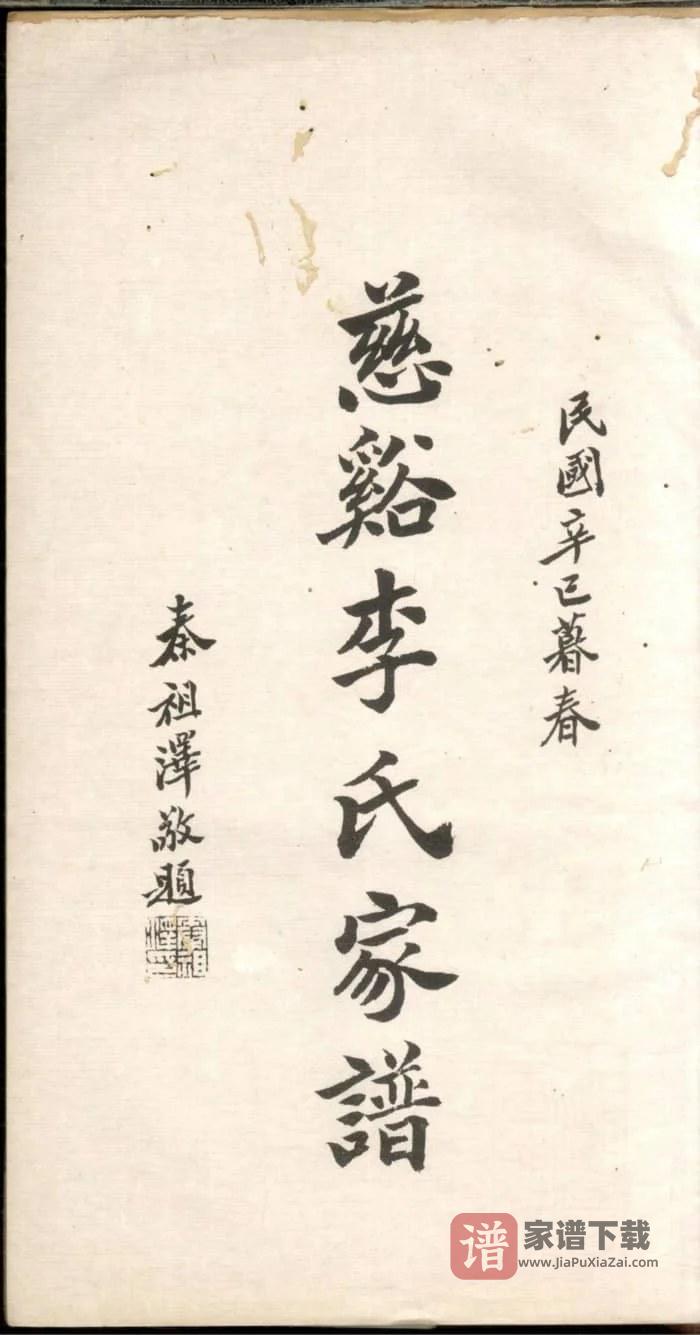 民國辛巳暮春
慈谿李氏家譜
秦祖澤敬題
谱
家谱下载
www.JiaPuXiaZai.com